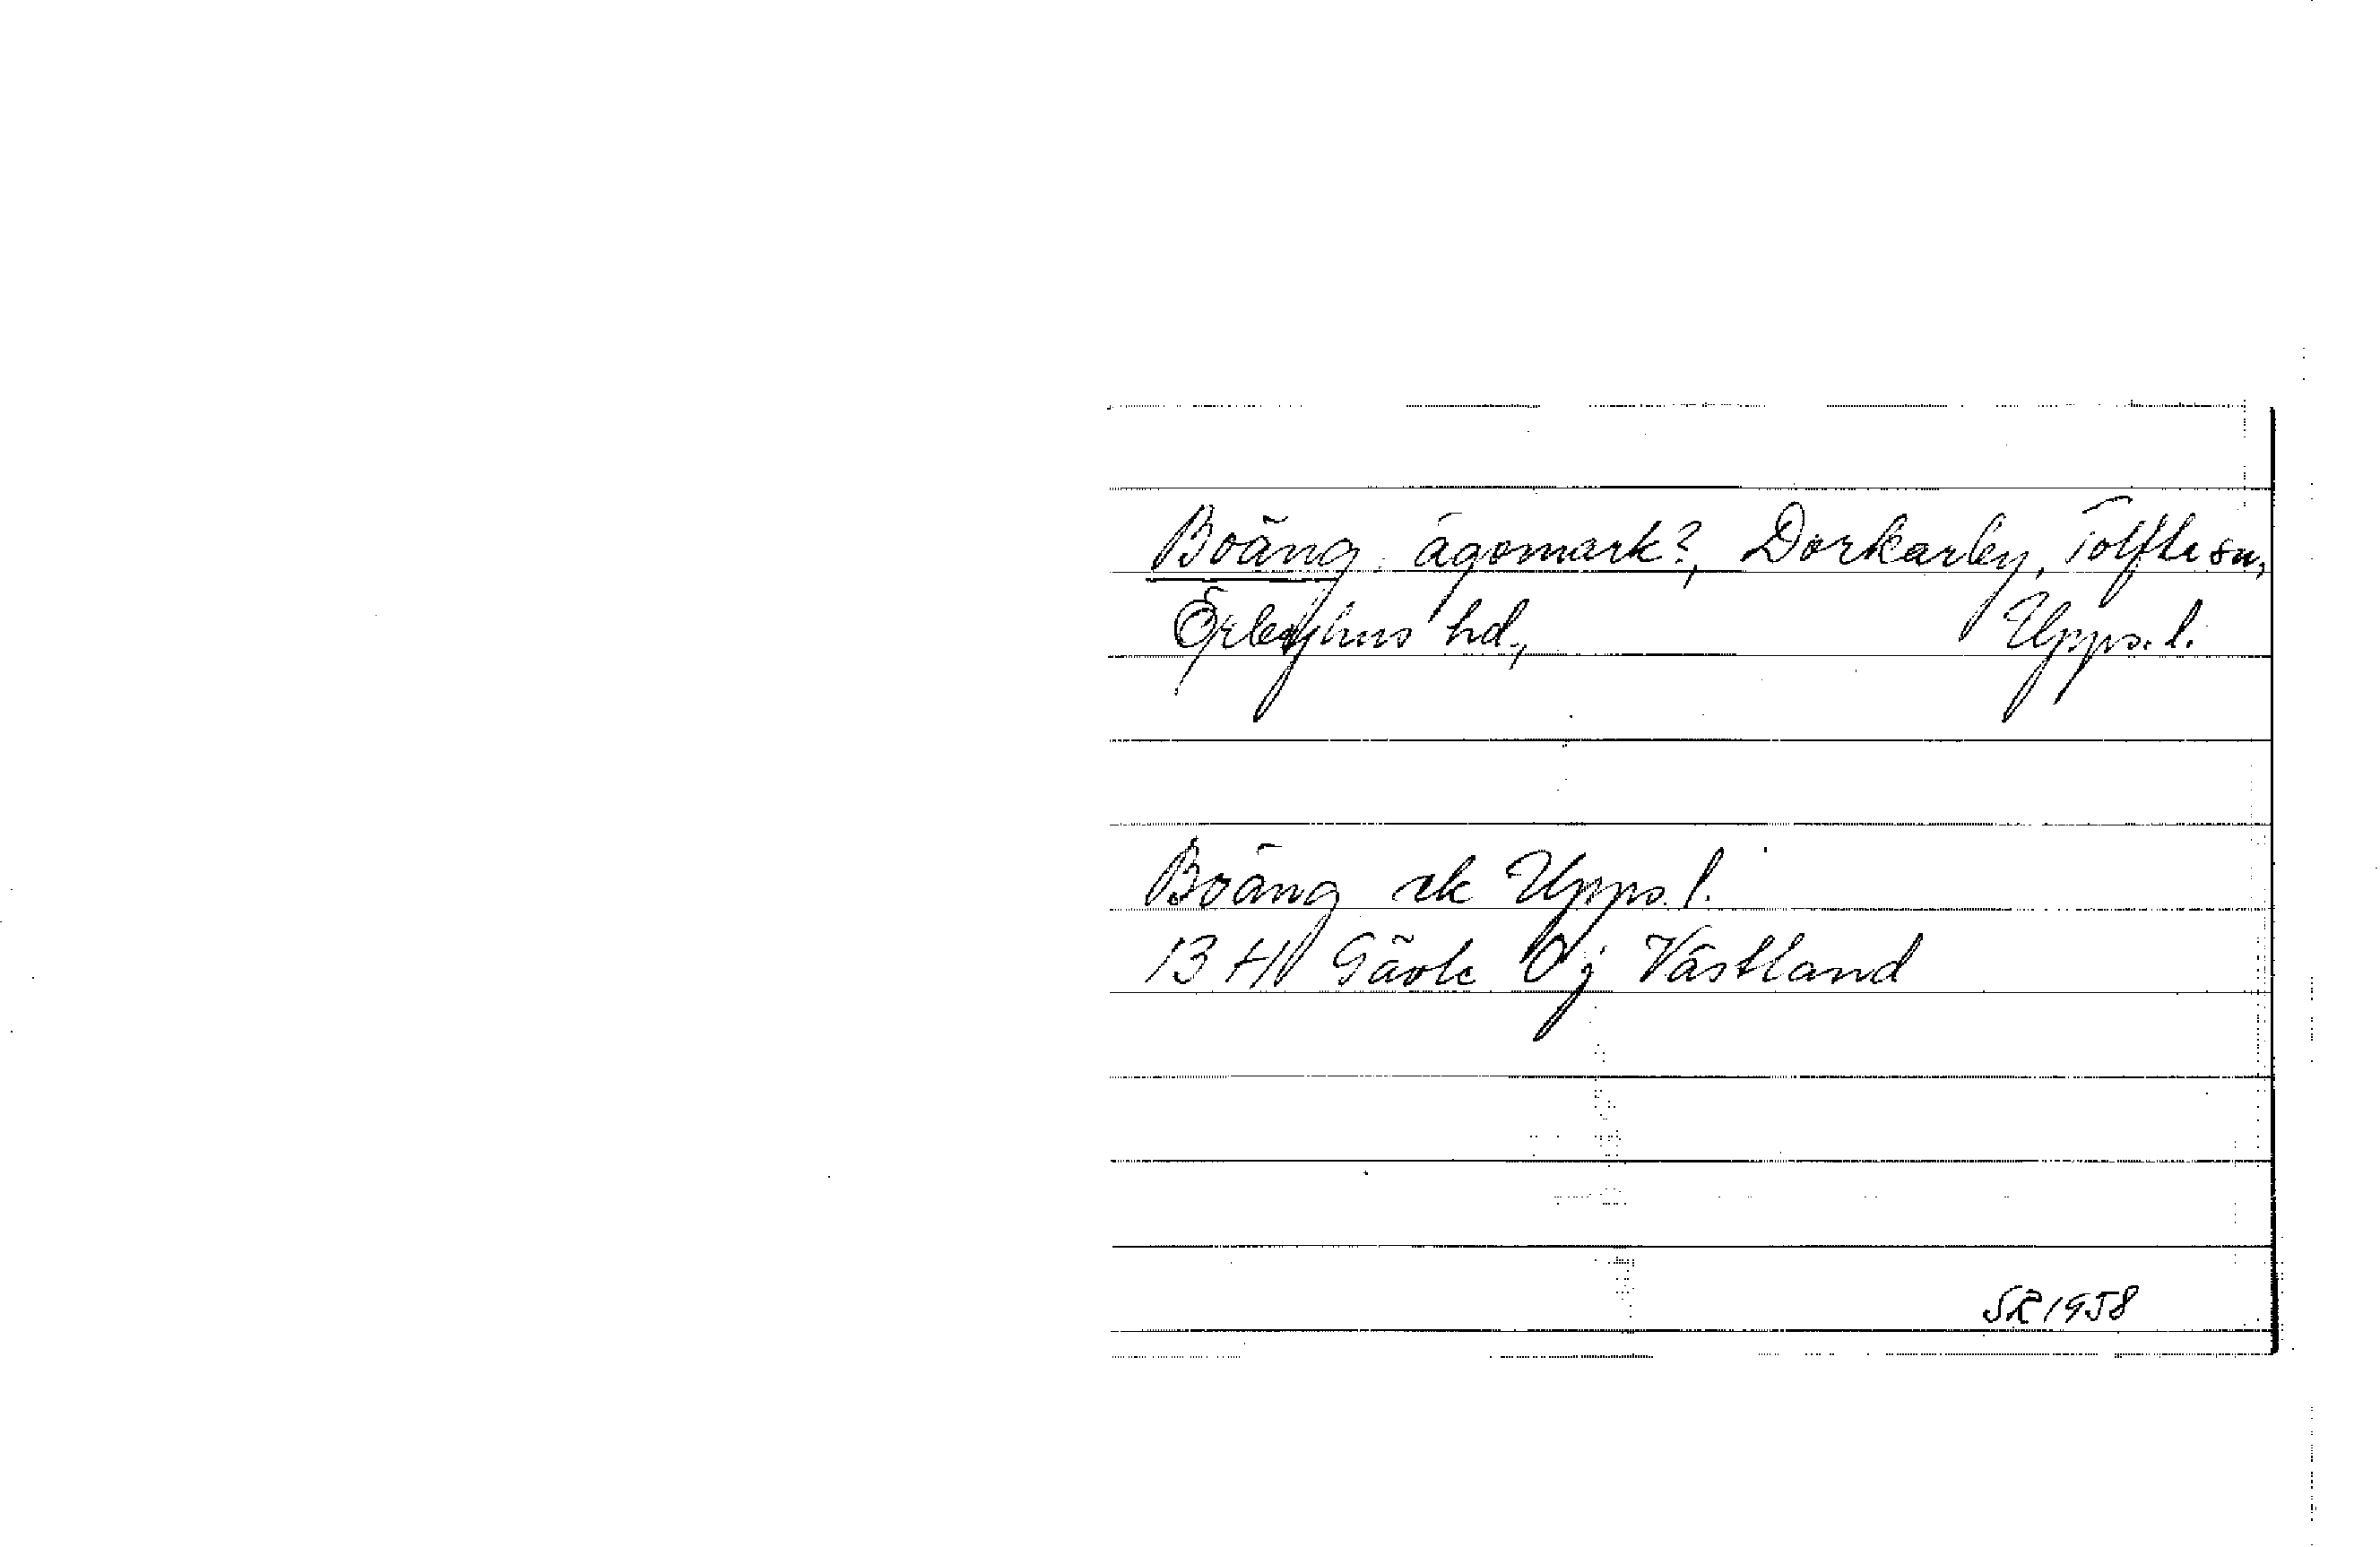 Boäng, ägomark?, Dorkarby, Tolfta sn,
Örbyhus hd, Upps. l.
Boäng ek Upps. l.
13 H Gävle 0j Västland
SR 1958